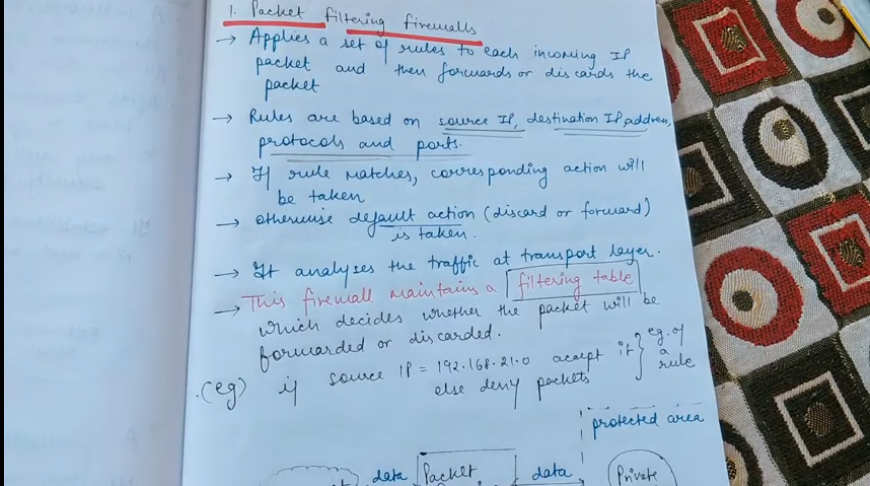 1. Packet filtering firewalls
→ Applies a set of rules to each incoming IP
packet and then forwards or discards the
packet
→ Rules are based on source IP, destination IP address,
protocols and ports.
→ If rule matches, corresponding action will
be taken
→ otherwise default action (discard or forward)
is taken.
→ It analyses the traffic at transport layer.
→ This firewall maintains a filtering table
which decides whether the packet will be
forwarded or discarded.
(eg) if source IP = 192.168.21.0 accept it } eg. of
else deny packets a
rule
protected area
data Packet data Private